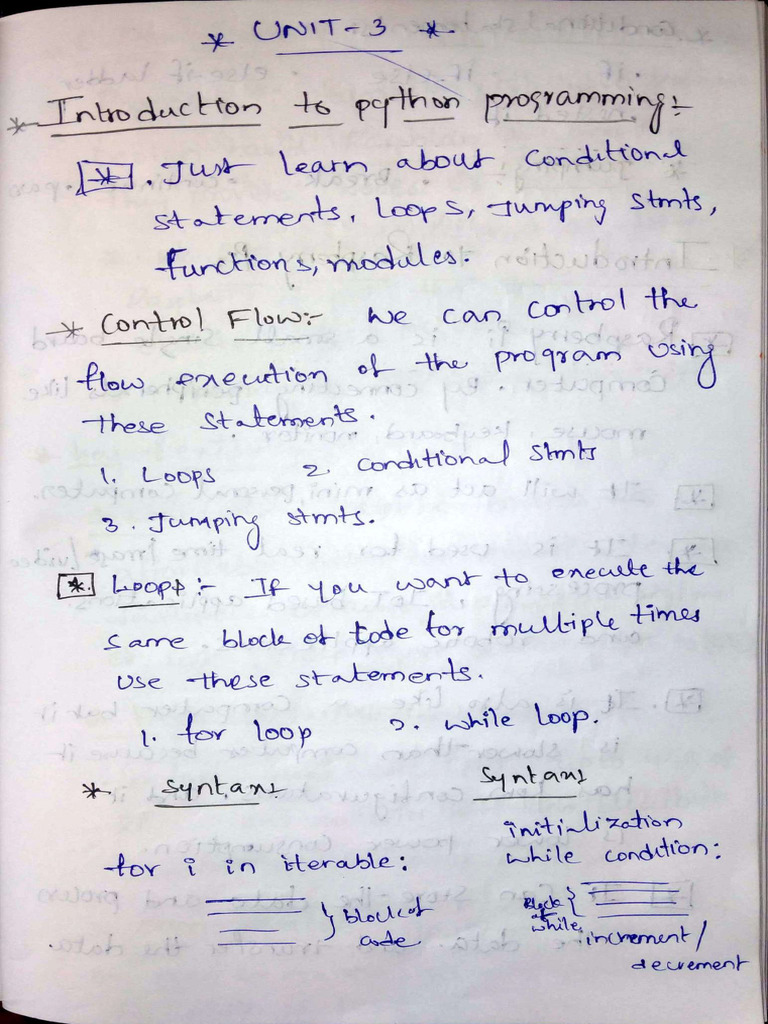 * UNIT-3 *
* Introduction to python programming:-
* . Just learn about conditional
statements, loops, Jumping stmts,
functions, modules.
* Control Flow:- We can control the
flow execution of the program using
these statements.
1. Loops 2. conditional stmts
3. Jumping stmts.
* Loops:- If you want to execute the
same block of code for multiple times
use these statements.
1. for loop 2. while loop.
* Syntax:- Syntax:-
initialization
for i in iterable: while condition:
} block of code
block of while {
increment/
decrement